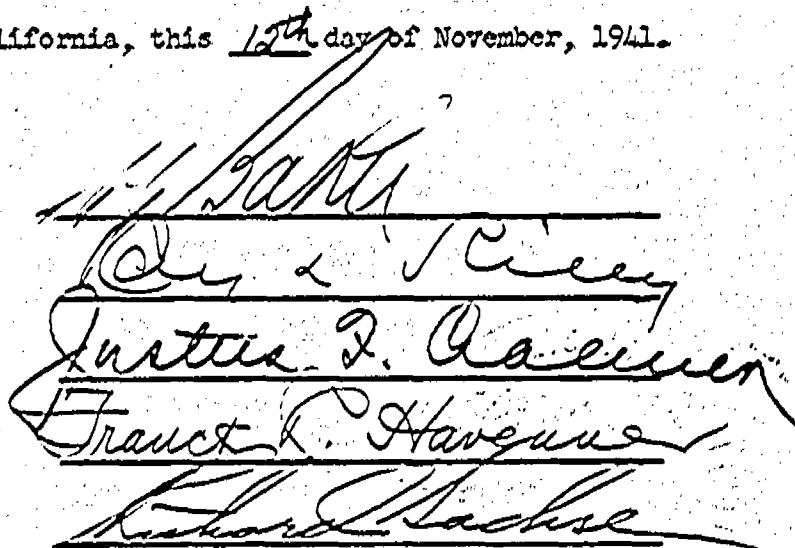 lifornia, this 12th day of November, 1941.
Baker
Ray L. Riley
Justus F. Craemer
Franck R. Havenner
Richard Sachse